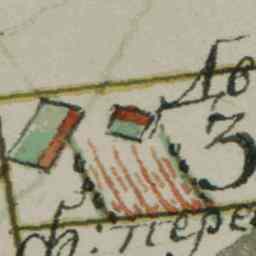 Дв
3
ф: пере